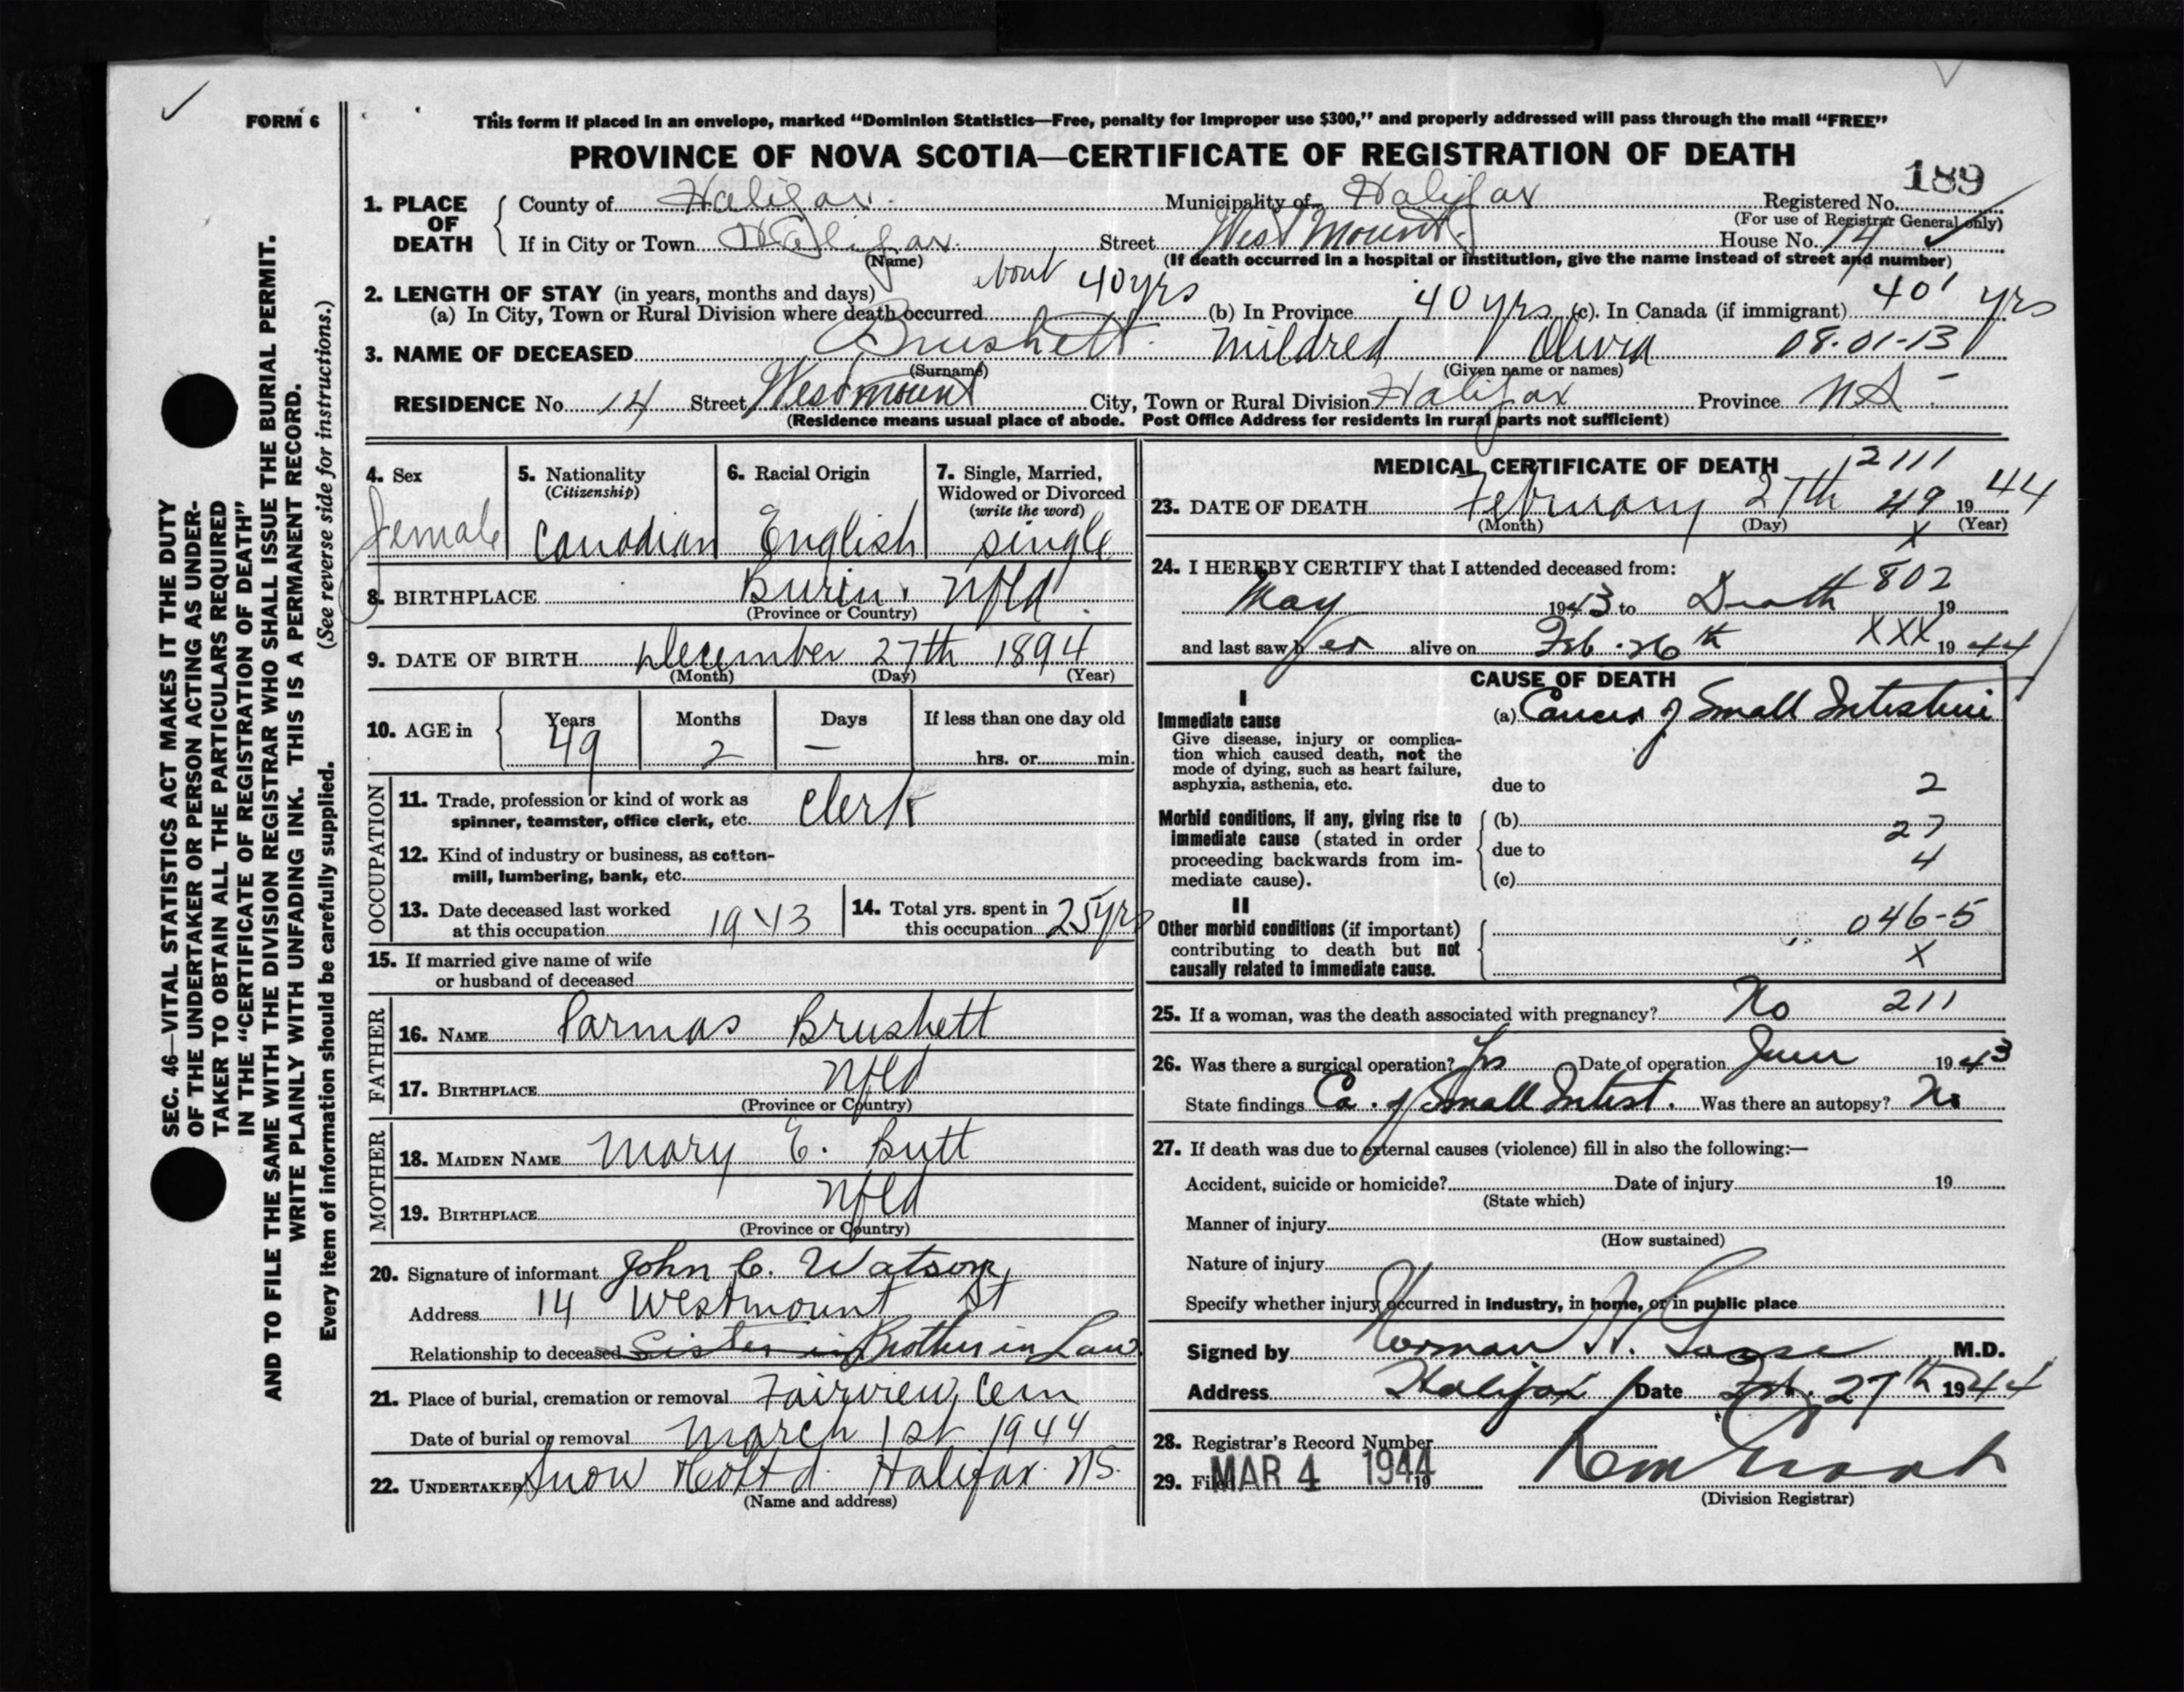 FORM 6
This form if placed in an envelope, marked "Dominion Statistics—Free, penalty for improper use $300," and properly addressed will pass through the mail "FREE"
PROVINCE OF NOVA SCOTIA—CERTIFICATE OF REGISTRATION OF DEATH
189
1. PLACE OF DEATH County of Halifax Municipality of Halifax Registered No.
(For use of Registrar General only)
If in City or Town Halifax Street West Mount House No. 14
(Name) (If death occurred in a hospital or institution, give the name instead of street and number)
2. LENGTH OF STAY (in years, months and days)
(a) In City, Town or Rural Division where death occurred about 40 yrs (b) In Province 40 yrs (c). In Canada (if immigrant) 40 yrs
3. NAME OF DECEASED Brushett Mildred Olivia 08-01-13
(Surname) (Given name or names)
RESIDENCE No. 14 Street Westmount City, Town or Rural Division Halifax Province NS
(Residence means usual place of abode. Post Office Address for residents in rural parts not sufficient)
4. Sex female
5. Nationality (Citizenship) Canadian
6. Racial Origin English
7. Single, Married, Widowed or Divorced (write the word) single
8. BIRTHPLACE Burin, Nfld
(Province or Country)
9. DATE OF BIRTH December 27th 1894
(Month) (Day) (Year)
10. AGE in Years 49 Months 2 Days — If less than one day old
hrs. or min.
OCCUPATION
11. Trade, profession or kind of work as
spinner, teamster, office clerk, etc. Clerk
12. Kind of industry or business, as cotton-
mill, lumbering, bank, etc.
13. Date deceased last worked
at this occupation 1943
14. Total yrs. spent in
this occupation 25 yrs
15. If married give name of wife
or husband of deceased
FATHER
16. NAME Parmas Brushett
17. BIRTHPLACE Nfld
(Province or Country)
MOTHER
18. MAIDEN NAME Mary E. Butt
19. BIRTHPLACE Nfld
(Province or Country)
20. Signature of informant John C. Watson
Address 14 Westmount St
Relationship to deceased Sister in Brother in Law
21. Place of burial, cremation or removal Fairview Cem
Date of burial or removal March 1st 1944
22. UNDERTAKER Snow & Co Ltd. Halifax. NS.
(Name and address)
MEDICAL CERTIFICATE OF DEATH
2111
23. DATE OF DEATH February 27th 49 19 44
(Month) (Day) (Year)
X
24. I HEREBY CERTIFY that I attended deceased from:
May 1943 to Death 802 19
and last saw her alive on Feb. 26th XXX 19 44
CAUSE OF DEATH
I
Immediate cause (a) Cancer of Small Intestine
Give disease, injury or complica-
tion which caused death, not the
mode of dying, such as heart failure,
asphyxia, asthenia, etc. due to 2
Morbid conditions, if any, giving rise to (b)
immediate cause (stated in order 27
proceeding backwards from im- due to 4
mediate cause). (c)
II
Other morbid conditions (if important) 046-5
contributing to death but not X
causally related to immediate cause.
25. If a woman, was the death associated with pregnancy? No 211
26. Was there a surgical operation? Yes Date of operation June 1943
State findings Ca. of Small Intest. Was there an autopsy? No
27. If death was due to external causes (violence) fill in also the following:—
Accident, suicide or homicide? Date of injury 19
(State which)
Manner of injury
(How sustained)
Nature of injury
Specify whether injury occurred in industry, in home, or in public place
Signed by Norman H. M.D.
Address Halifax Date Feb. 27th 1944
28. Registrar's Record Number
29. Filed MAR 4 1944 19
(Division Registrar)
SEC. 46—VITAL STATISTICS ACT MAKES IT THE DUTY
OF THE UNDERTAKER OR PERSON ACTING AS UNDER-
TAKER TO OBTAIN ALL THE PARTICULARS REQUIRED
IN THE "CERTIFICATE OF REGISTRATION OF DEATH"
AND TO FILE THE SAME WITH THE DIVISION REGISTRAR WHO SHALL ISSUE THE BURIAL PERMIT.
WRITE PLAINLY WITH UNFADING INK. THIS IS A PERMANENT RECORD.
Every item of information should be carefully supplied. (See reverse side for instructions.)